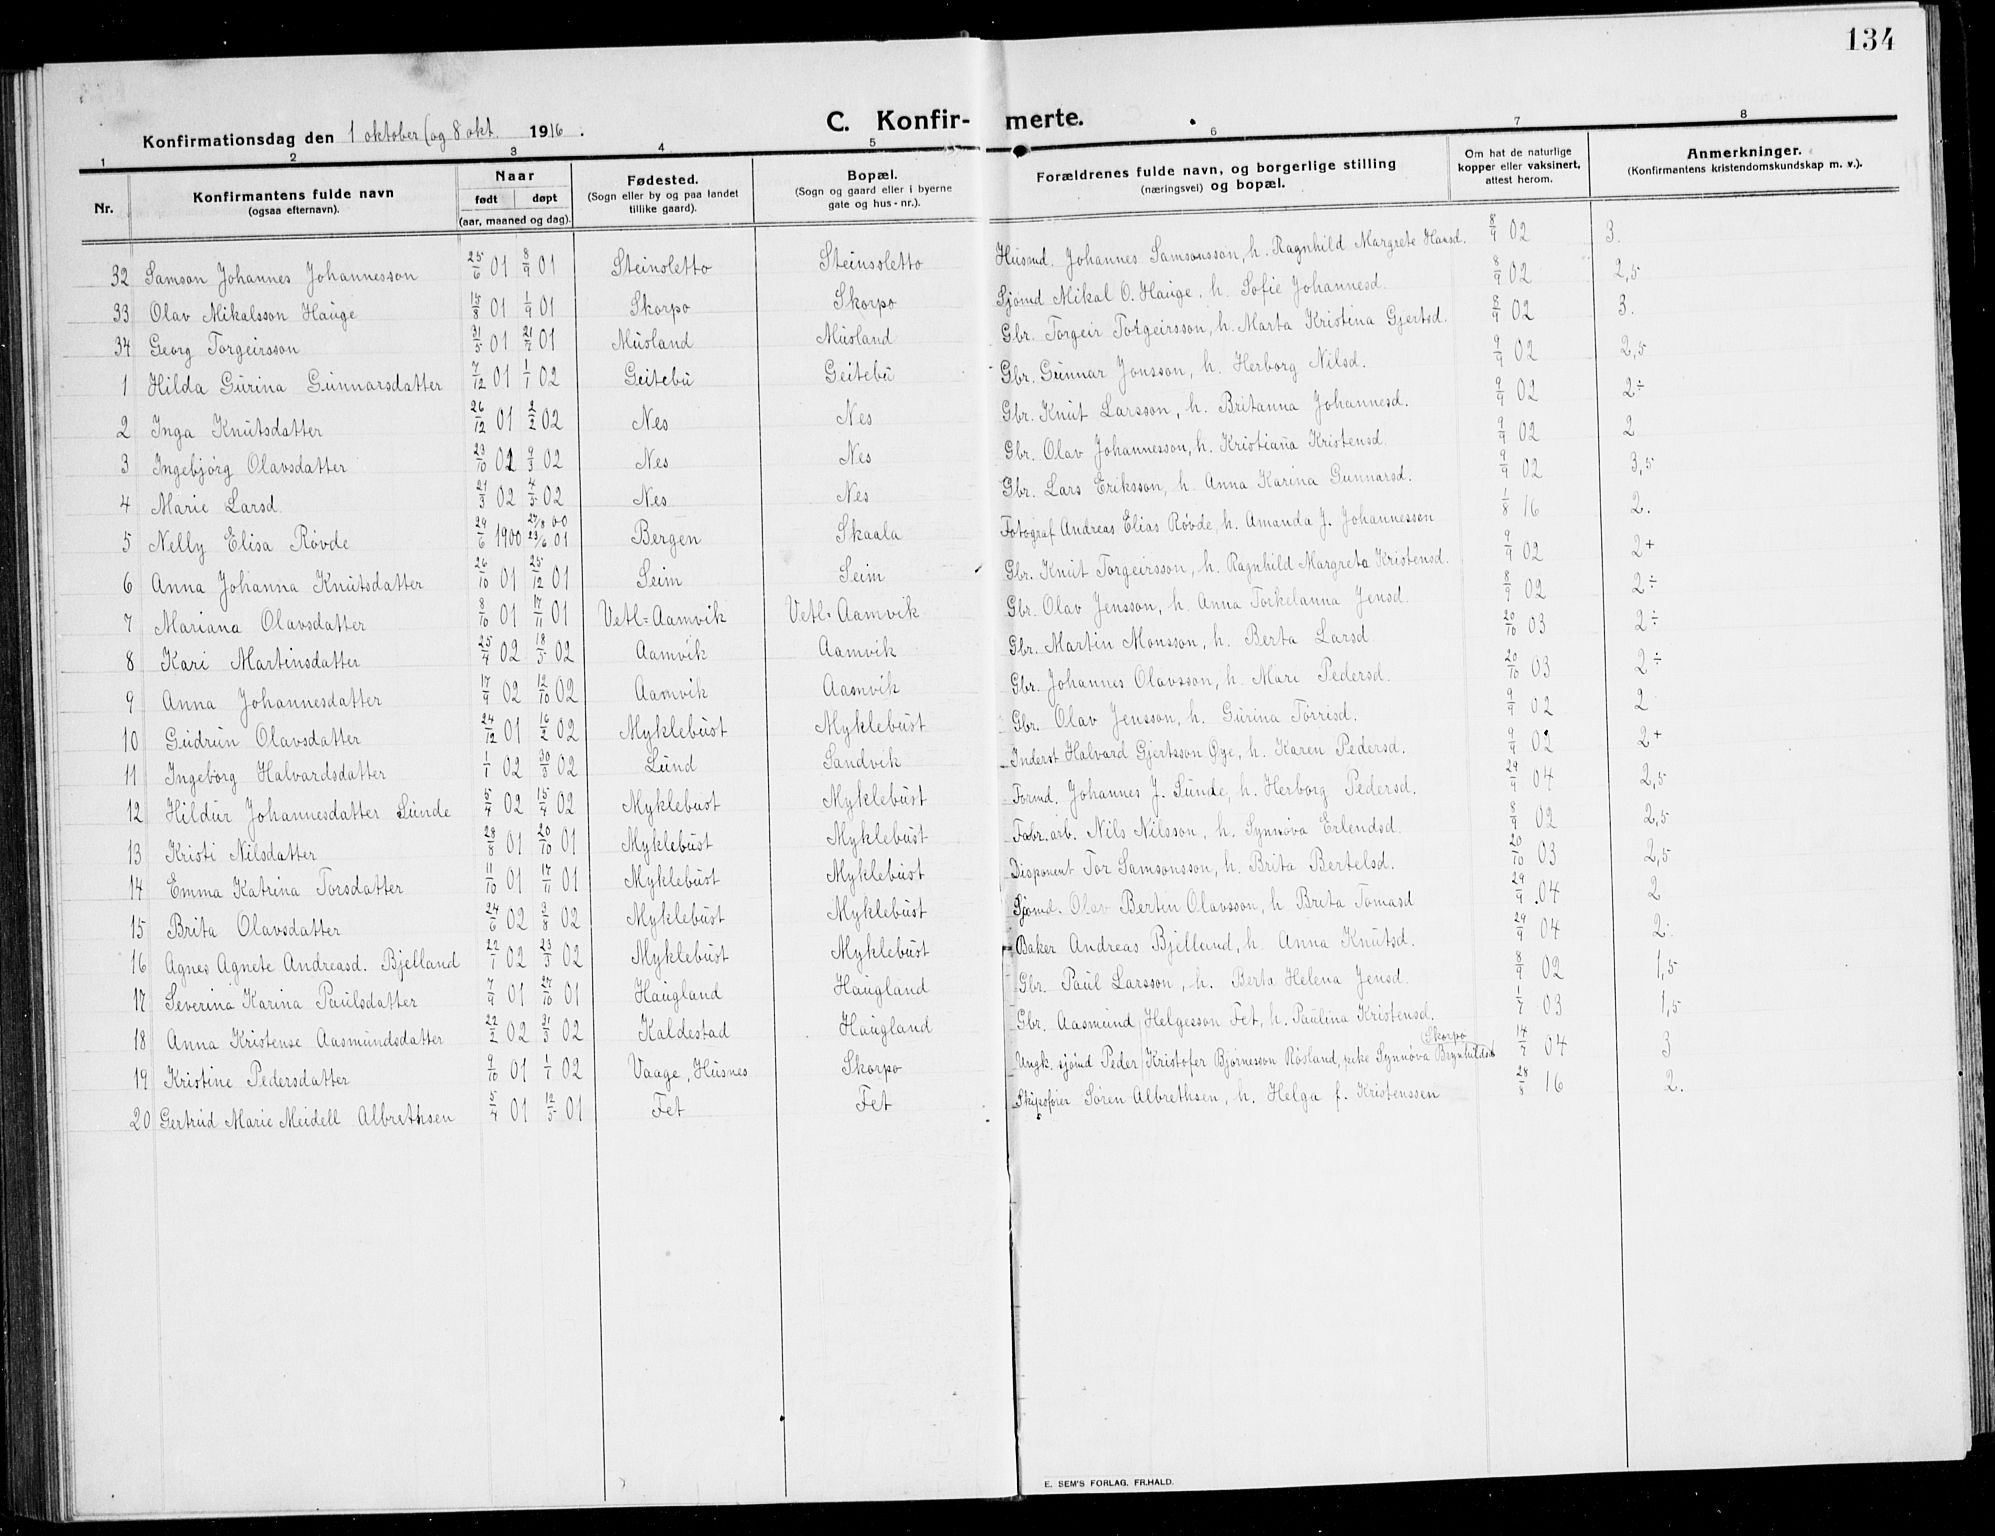 134
C. Konfir- merte.
Konfirmationsdag den 1 oktober (og 8 okt. 1916.
1 2 3 4 5 6 7 8
Nr. Konfirmantens fulde navn (ogsaa efternavn). Naar født døpt (aar, maaned og dag). Fødested. (Sogn eller by og paa landet tillike gaard). Bopæl. (Sogn og gaard eller i byerne gate og hus-nr.). Forældrenes fulde navn, og borgerlige stilling (næringsvei) og bopæl. Om hat de naturlige kopper eller vaksinert, attest herom. Anmerkninger. (Konfirmantens kristendomskundskap m. v.).
32 Samson Johannes Johannesson 25/6 01 8/9 01 Steinsletto Steinsletto Husmd. Johannes Samsonsson, h. Ragnhild Margrete Hansd. 8/9 02 3.
33 Olav Mikalsson Hauge 15/8 01 1/9 01 Skorpo Skorpo Sjømd Mikal O. Hauge, h. Sofie Johannesd. 8/9 02 2,5
34 Georg Torgeirsson 31/5 01 21/7 01 Musland Musland Gbr. Torgeir Torgeirsson, h. Marta Kristina Gjertsd. 8/9 02 3.
1 Hilda Gurina Gunnarsdatter 7/12 01 1/1 02 Geitebu Geitebu Gbr. Gunnar Jonsson, h. Herborg Nilsd. 9/9 02 2,5
2 Inga Knutsdatter 26/12 01 2/2 02 Nes Nes Gbr. Knut Larsson, h. Britanna Johannesd. 9/9 02 2÷
3 Ingebjørg Olavsdatter 23/10 02 9/3 02 Nes Nes Gbr. Olav Johannesson, h. Kristiana Kristensd. 9/9 02 2
4 Marie Larsd. 21/3 02 4/5 02 Nes Nes Gbr. Lars Eriksson, h. Anna Karina Gunnarsd. 9/9 02 3,5
5 Nelly Elisa Røvde 29/6 1900 27/8 00 23/6 01 Bergen Skaala Fotograf Andreas Elias Røvde, h. Amanda J. Johannessen 1/8 16 2.
6 Anna Johanna Knutsdatter 26/10 01 25/12 01 Seim Seim Gbr. Knut Torgeirsson, h. Ragnhild Margreta Kristensd. 9/9 02 2+
7 Mariana Olavsdatter 8/10 01 17/11 01 Vetl-Aamvik Vetl-Aamvik Gbr. Olav Jensson, h. Anna Torkelanna Jensd. 8/9 02 2÷
8 Kari Martinsdatter 25/4 02 18/5 02 Aamvik Aamvik Gbr. Martin Monsson, h. Berta Larsd. 20/10 03 2÷
9 Anna Johannesdatter 17/9 02 12/10 02 Aamvik Aamvik Gbr. Johannes Olavsson, h. Mari Pedersd. 20/10 03 2÷
10 Gudrun Olavsdatter 24/12 01 16/2 02 Myklebust Myklebust Gbr. Olav Jensson, h. Gurina Torrisd. 9/9 02 2
11 Ingeborg Halvardsdatter 1/1 02 30/3 02 Lund Sandvik Inderst Halvard Gjertsson Øye, h. Karen Pedersd. 9/9 02 2+
12 Hildur Johannesdatter Sunde 5/4 02 15/4 02 Myklebust Myklebust Formd. Johannes J. Sunde, h. Herborg Pedersd. 29/9 04 2,5
13 Kristi Nilsdatter 28/8 01 20/10 01 Myklebust Myklebust Fabr.arb. Nils Nilsson, h. Synnøva Erlendsd. 8/9 02 2,5
14 Emma Katrina Torsdatter 11/10 01 17/11 01 Myklebust Myklebust Disponent Tor Samsonsson, h. Brita Bertelsd. 20/10 03 2,5
15 Brita Olavsdatter 24/6 02 3/8 02 Myklebust Myklebust Sjømd. Olav Berten Olavsson, h Brita Tomasd 29/9 04 2
16 Agnes Agnete Andreasd. Bjelland 22/1 02 23/3 02 Myklebust Myklebust Baker Andreas Bjelland, h. Anna Knutsd. 29/9 04 2.
17 Severina Karina Paulsdatter 7/9 01 27/10 01 Haugland Haugland Gbr. Paul Larsson, h. Berta Helena Jensd. 8/9 02 1,5
18 Anna Kristense Aasmundsdatter 22/2 02 31/3 02 Kaldestad Haugland Gbr. Aasmund Helgesson Fet, h. Paulina Kristensd. 1/7 03 1,5
19 Kristine Pedersdatter 9/10 01 1/1 02 Vaage, Husnes Skorpo Ungk. sjømd Peder Kristofer Bjørnesson Røsland, pike Synnøva Brynhildsd. Skorpo 14/7 04 3
20 Gertrud Marie Meidell Albrethsen 5/4 01 12/5 01 Fet Fet Skipsfører Søren Albrethsen, h. Helga f. Kristenssen 28/8 16 2.
E. SEM'S FORLAG. FR.HALD.